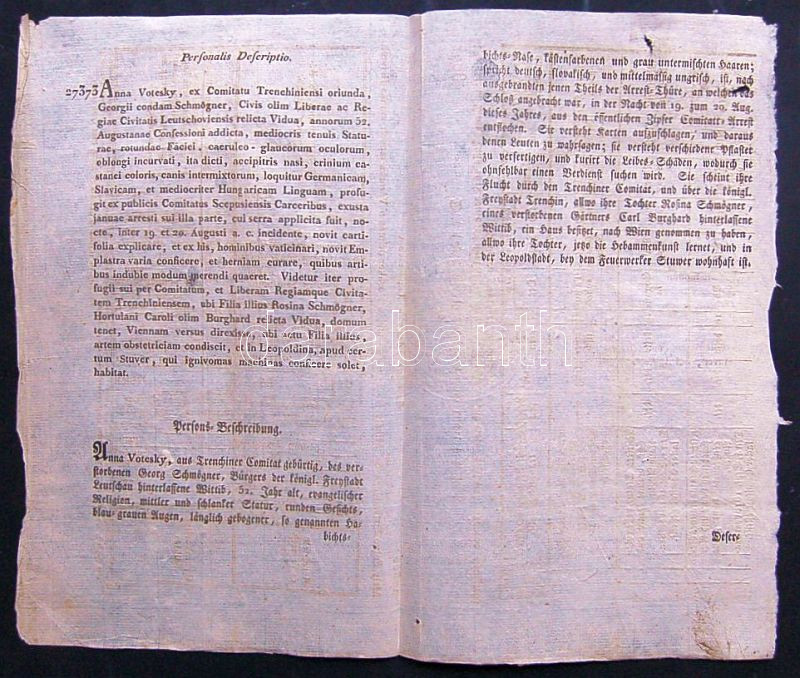 Personalis Descriptio.
27373 Anna Votesky, ex Comitatu Trenchiniensi oriunda,
Georgii condam Schmögner, Civis olim Liberae ac Re-
giae Civitatis Leutschoviensis relicta Vidua, annorum 52.
Augustanae Confessioni addicta, mediocris tenuis Statu-
rae, rotundae Faciei, caeruleo-glaucorum oculorum,
oblongi incurvati, ita dicti, accipitris nasi, crinium ca-
stanei coloris, canis intermixtorum, loquitur Germanicam,
Slavicam, et mediocriter Hungaricam Linguam, profu-
git ex publicis Comitatus Scepusiensis Carceribus, exusta
januae arresti sui illa parte, cui serra applicita fuit, no-
cte, inter 19. et 20. Augusti a. c. incidente, novit carti-
folia explicare, et ex his, hominibus vaticinari, novit Em-
plastra varia conficere, et herniam curare, quibus arti-
bus indubie modum merendi quaeret. Videtur iter pro-
fugii sui per Comitatum, et Liberam Regiamque Civita-
tem Trenchiniensem, ubi Filia illius Rosina Schmögner,
Hortulani Caroli olim Burghard relicta Vidua, domum
tenet, Viennam versus direxisse, ubi actu Filia illius,
artem obstetriciam condiscit, et in Leopoldina, apud cer-
tum Stuver, qui ignivomas machinas conficere solet,
habitat.
Persons-Beschreibung.
Anna Votesky, aus Trenchiner Comitat gebürtig, des ver-
storbenen Georg Schmögner, Bürgers der königl. Freystadt
Leutschau hinterlassene Wittib, 52. Jahr alt, evangelischer
Religion, mittler und schlanker Statur, runden Gesichts,
blau-grauen Augen, länglich gebogener, so genannten Ha-
bichts-
bichts-Nase, kästenfarbenen und grau untermischten Haaren;
spricht deutsch, slovakisch, und mittelmäßig ungrisch, ist, nach
ausgebrandten jenen Theils der Arrest-Thüre, an welchen das
Schloß angebracht war, in der Nacht von 19. zum 20. Aug.
dieses Jahres, aus den öffentlichen Zipser Comitats-Arrest
entflochen. Sie versteht Karten aufzuschlagen, und daraus
denen Leuten zu wahrsagen; sie versteht verschiedene Pflaster
zu verfertigen, und kurirt die Leibes-Schäden, wodurch sie
ohnfehlbar einen Verdienst suchen wird. Sie scheint ihre
Flucht durch den Trenchiner Comitat, und über die königl.
Freystadt Trenchin, allwo ihre Tochter Rosina Schmögner,
eines verstorbenen Gärtners Carl Burghard hinterlassene
Wittib, ein Haus besitzet, nach Wien genommen zu haben,
allwo ihre Tochter, jetzo die Hebammenkunst lernet, und in
der Leopoldstadt, bey dem Feuerwerker Stuwer wohnhaft ist.
Descr-
databanth